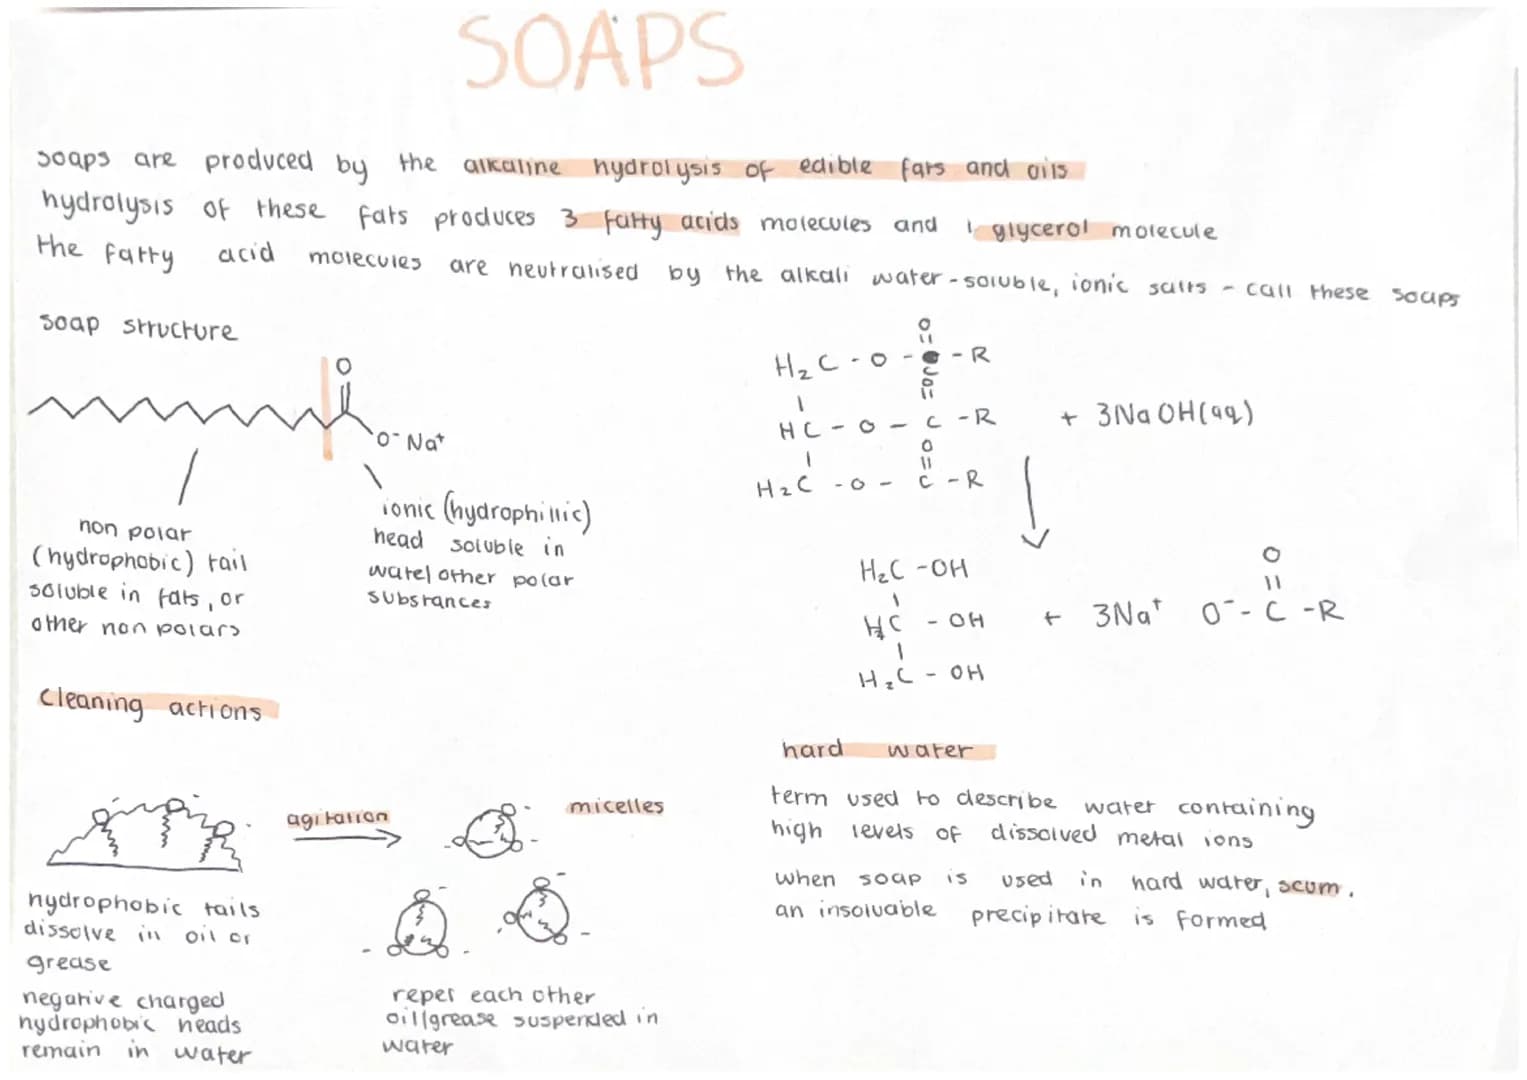 SOAPS
soaps are produced by the alkaline hydrolysis of edible fats and oils
hydrolysis of these fats produces 3 fatty acids molecules and 1 glycerol molecule
the fatty acid molecules are neutralised by the alkali water-soluble, ionic salts - call these soaps
soap structure
O
O⁻ Na⁺
non polar
(hydrophobic) tail
soluble in fats, or
other non polars
ionic (hydrophillic)
head soluble in
water/other polar
substances
O
H₂C - O - C - R
O
HC - O - C - R
O
H₂C - O - C - R
+ 3NaOH(aq)
H₂C - OH
HC - OH
H₂C - OH
+ 3Na⁺ O⁻ - C - R
O
cleaning actions
agitation
micelles
hydrophobic tails
dissolve in oil or
grease
negative charged
hydrophobic heads
remain in water
repel each other
oil/grease suspended in
water
hard water
term used to describe water containing
high levels of dissolved metal ions
when soap is used in hard water, scum,
an insoluable precipitate is formed